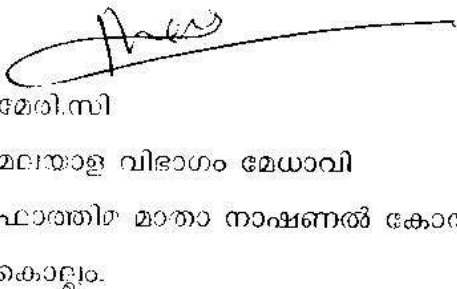 മേരി.സി
മലയാള വിഭാഗം മേധാവി
ഫാത്തിമ മാതാ നാഷണൽ
കൊല്ലം.